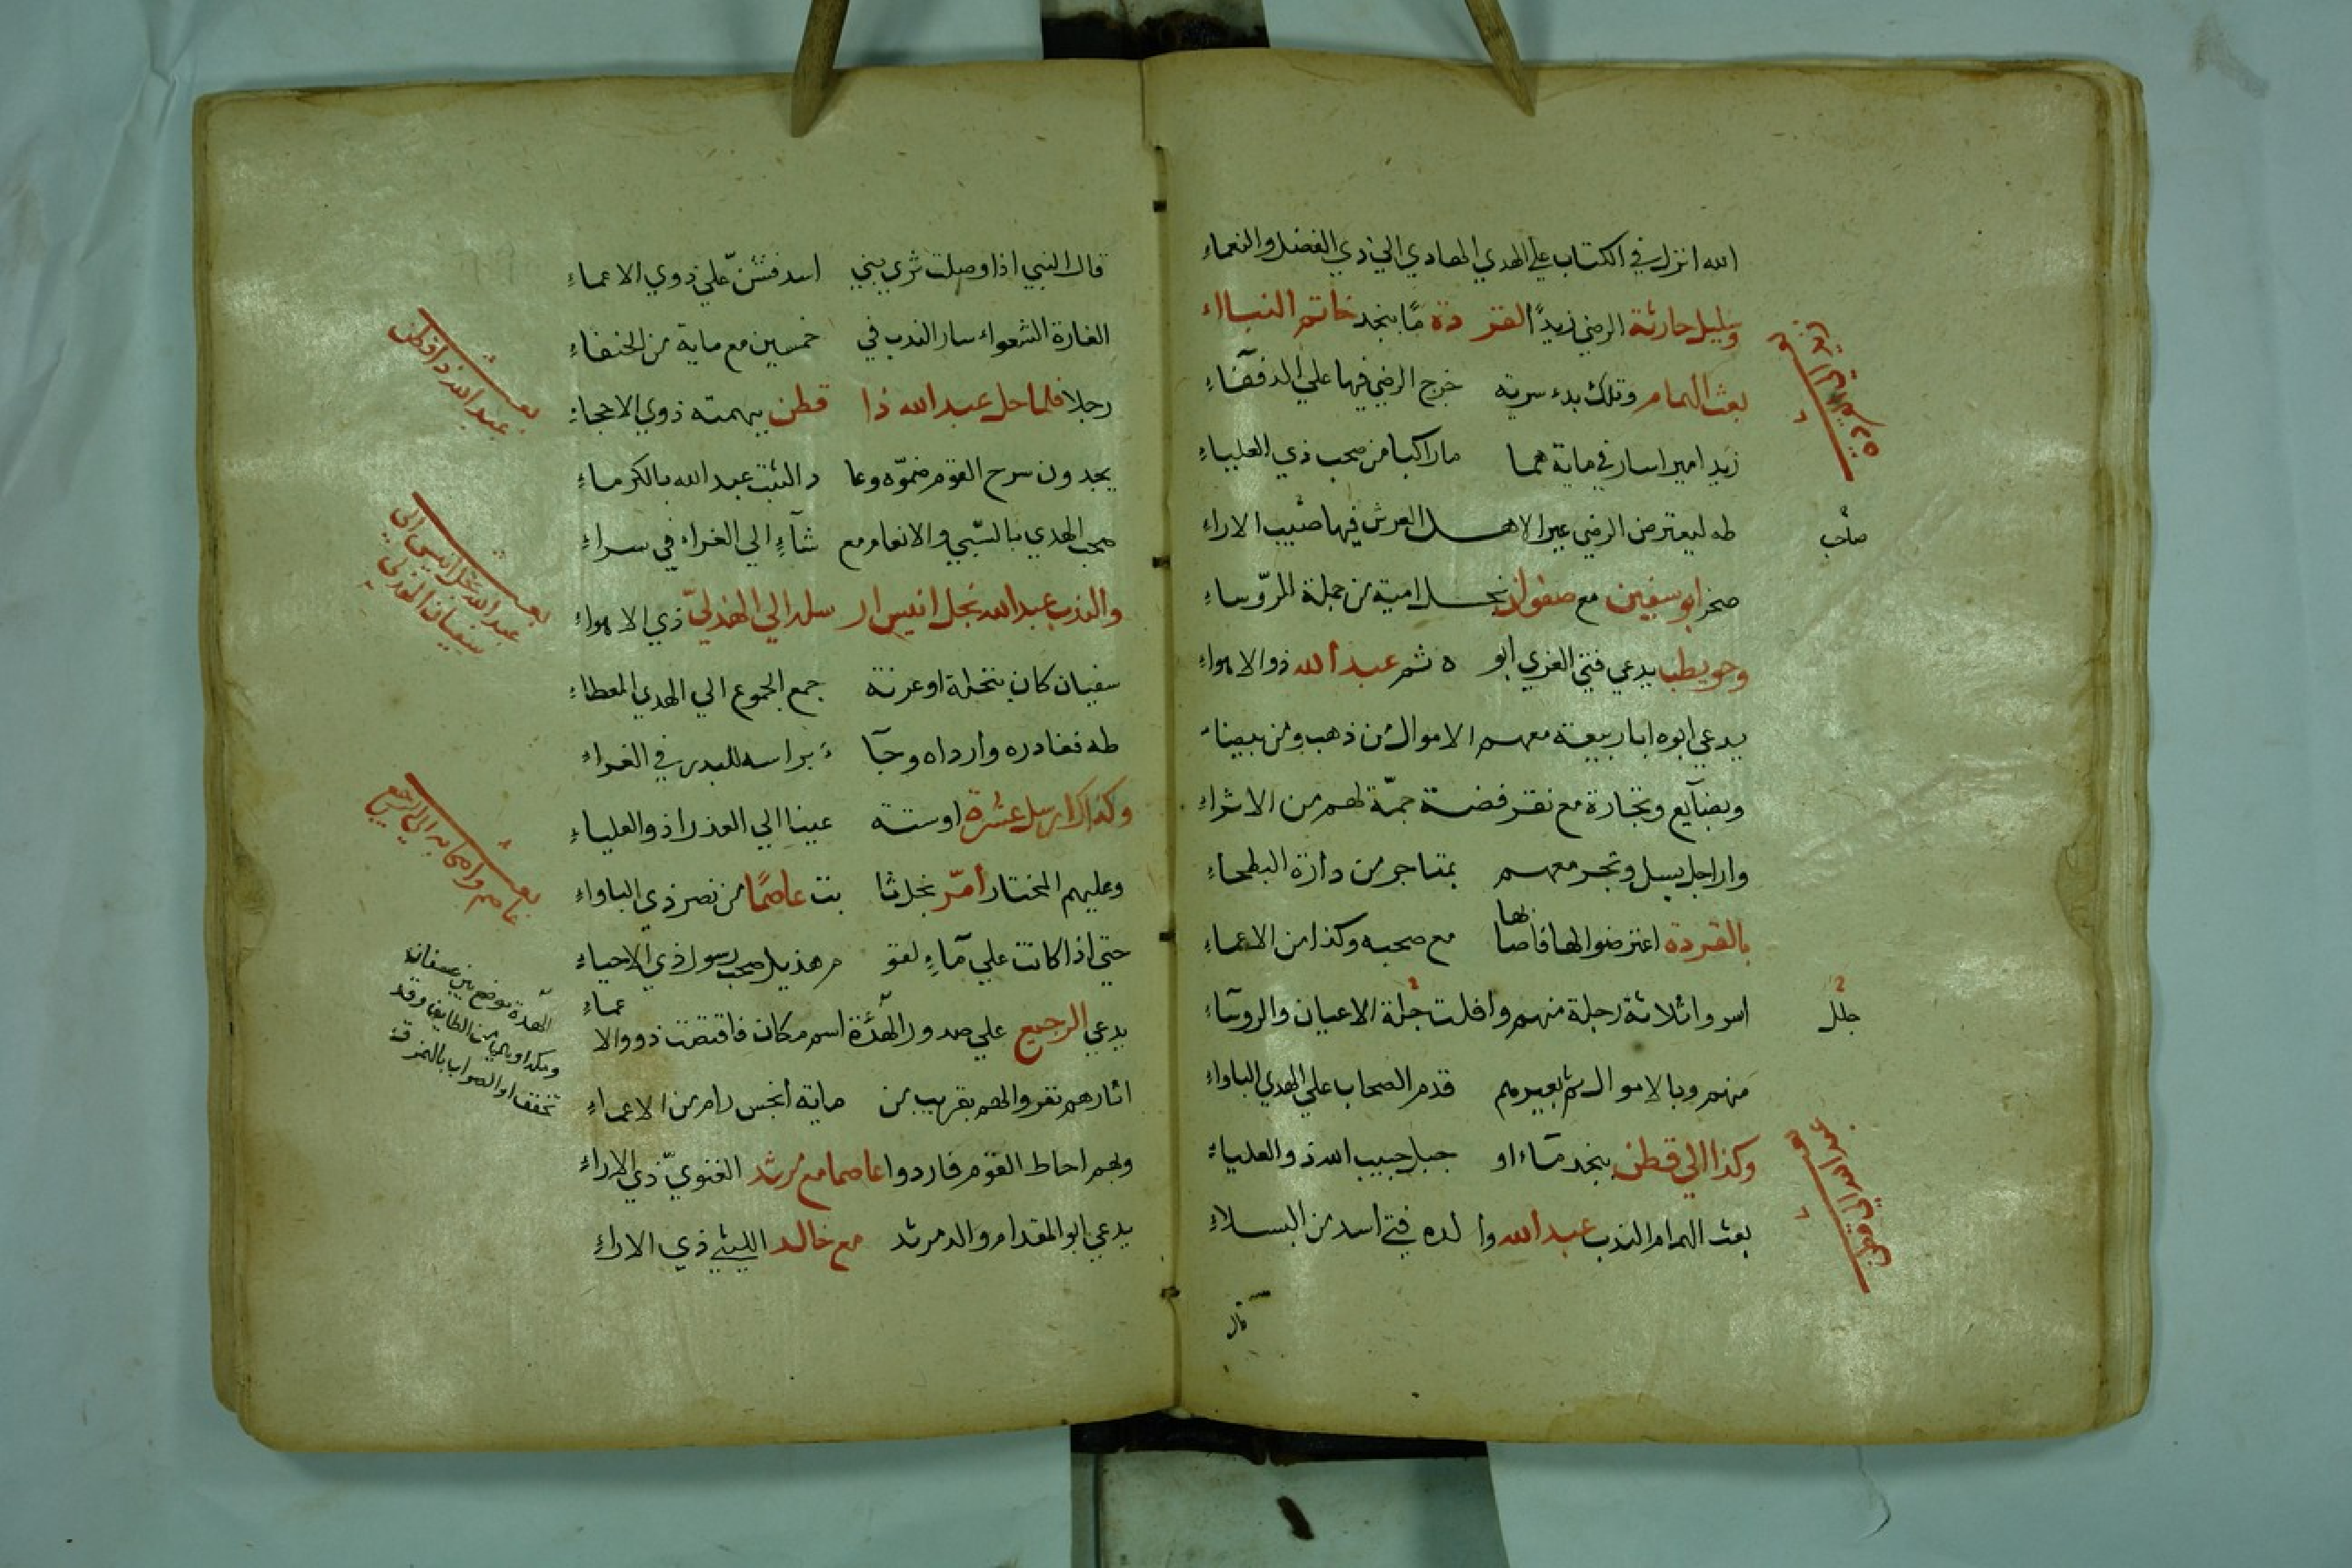 الله انزل في الكتاب علي الهدي الهادي الي ذي الفضل والنعماء
وسليل حارثة الرضي زيدًا القر دة مًا بنجد خاتم النباء
بعث الهمام وتلك بدء سرية خرج الرضي فيها علي الدفقآء
زيد اميرا سار في ماية هما ما راكبا من صحب ذي العلياء
طه ليعترض الرضي عيرا لاهل العرش فيها صيب الاراء
صخر ابو سفين مع صفوان نجل امية من جملة الروساء
وحويطب يدعي فتي العزي ابو ه ثم عبد الله ذو الاهواء
يدعي ابوه ابا ربيعة معهم الاموال من ذهب ومن بيضاء
وبضآيع وتجارة مع نقر فضة جمّة لهم من الاثراء
واراجل بسل وتجر معهم بمتاجر من دارة البطحاء
بالقردة اعترضوا لها فاصابها مع صحبه وكذا من الاعماء
اسروا ثلاثة رجلة منهم وافلت جلة الاعيان والروسآء
منهم وبالاموال ثم بعيرهم قدم الصحاب علي الهدي الباواء
وكذا الي قطن بنجد مآء او جبل حبيب الله ذو العلياء
بعث الهمام الندب عبد الله وا لده فتي اسد من البسلاء
قال
زيد الي القردة
جلل
عبد الله الي قطن
قال النبي اذا وصلت ثري بني اسد فشنّ علي ذوي الاعماء
الغارة الشعواء سار الندب في خمسين مع ماية من الحنفاء
رجلا فلما حل عبد الله ذا قطن بهمته ذوي الاحجاء
يجدون سرح القوم ضموّه وعا د الثبت عبد الله بالكرماء
صحب الهدي بالسّبي والانعام مع شآءٍ الي الغراء في سراء
والندب عبد الله نجل انيس ار سله الي الهذليّ ذي الاهواء
سفيان كان بنخلة او عرنة جمع الجموع الي الهدي المعطاء
طه فغادره وارداه وجآ ء براسه للبدر في الغراء
وكذاك ارسل عشرة او ستة عينا الي العذرا ذو العلياء
وعليهم المختار أمّر نجل ثا بت عاصمًا من نصر ذي الباواء
حتي اذا كانت علي مآءٍ لقو م هذيل صحب رسول ذي الاحياء
يدعي الرجيع علي صدور الهدّة اسم مكان فاقتصت ذوو الاعماء
اثارهم نقروا لهم بقريب من ماية أنجس رام من الاعماء
وبهم احاط القوم فاردوا عاصما مع مرثد الغنويّ ذي الاراء
يدعي ابو المقدام والد مرثد مع خالد الليثي ذي الاراء
بعث عبد الله ذا قطن
بعث عبد الله نجل انيس الي سفيان الهذلي
بعث عاصم واصحابه الي الرجيع
الهدّة موضع بين عسفان
ومكة او بالياء من الطايف وقد
تخفف او الصواب بالهمزة